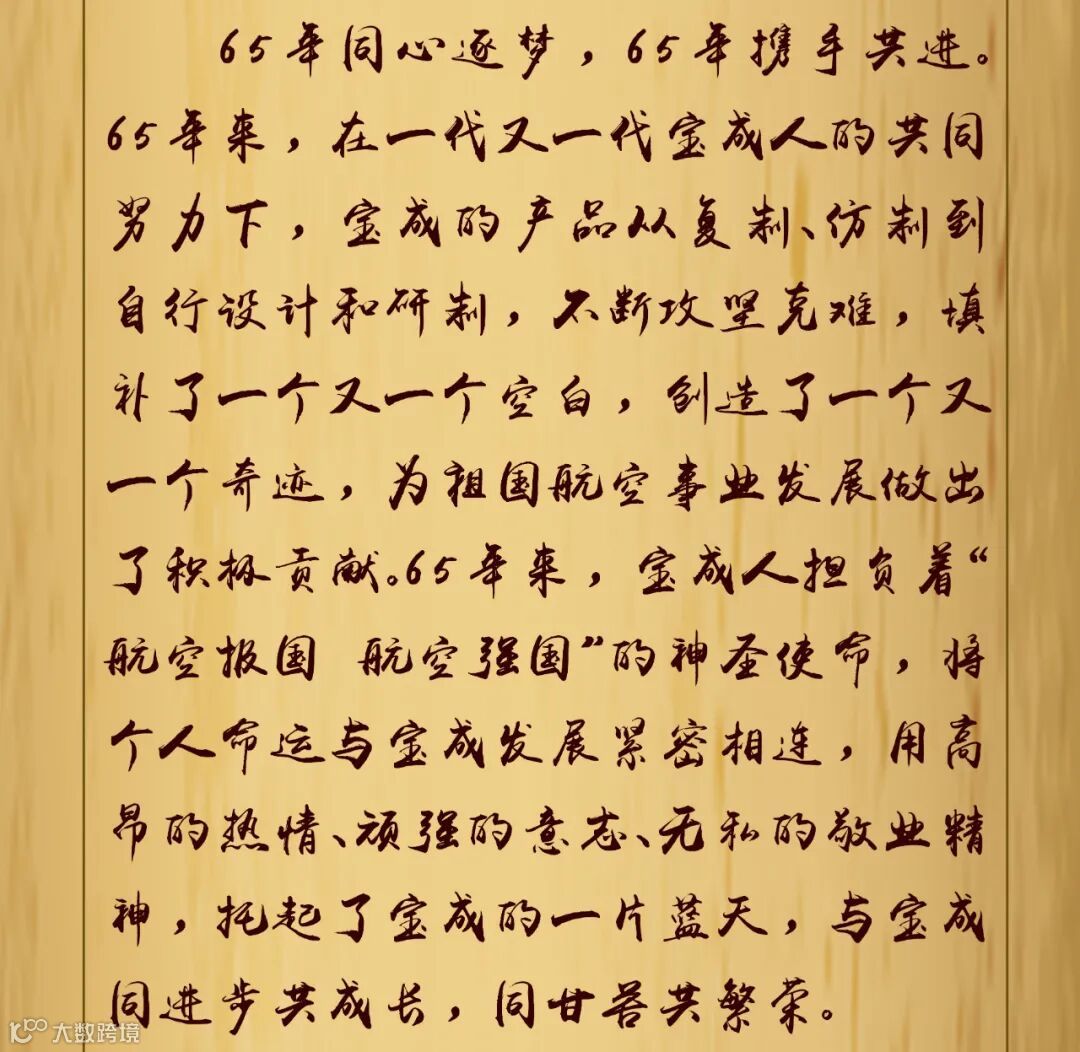 65年同心逐梦，65年携手共进。
65年来，在一代又一代宝成人的共同
努力下，宝成的产品从复制、仿制到
自行设计和研制，不断攻坚克难，填
补了一个又一个空白，创造了一个又
一个奇迹，为祖国航空事业发展做出
了积极贡献。65年来，宝成人担负着“
航空报国 航空强国”的神圣使命，将
个人命运与宝成发展紧密相连，用高
昂的热情、顽强的意志、无私的敬业精
神，托起了宝成的一片蓝天，与宝成
同进步共成长，同甘苦共繁荣。
大数跨境